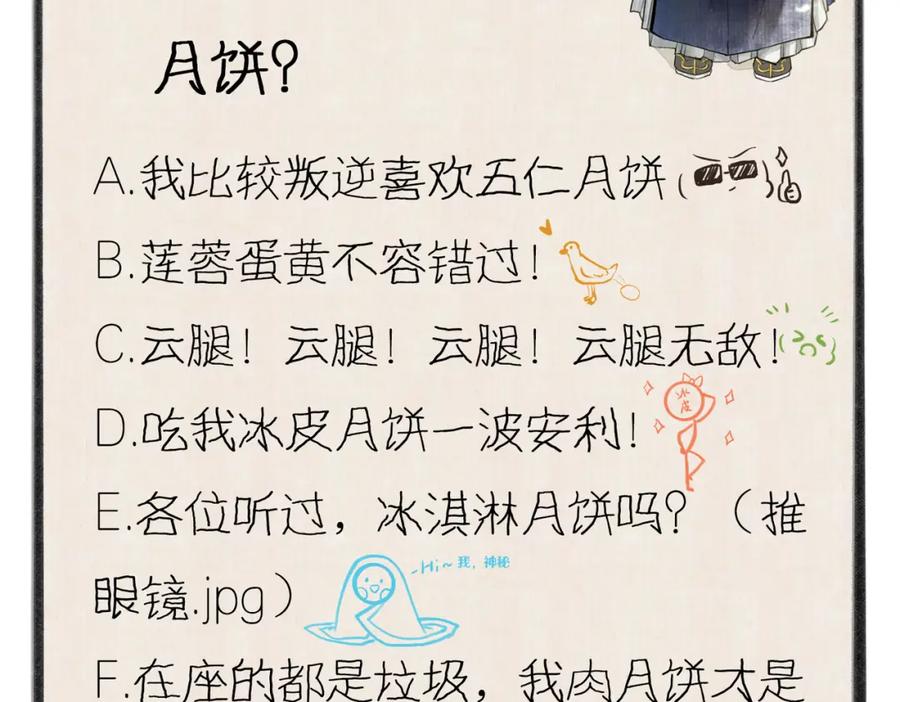 月饼？
A.我比较叛逆喜欢五仁月饼
B.莲蓉蛋黄不容错过！
C.云腿！云腿！云腿！云腿无敌！
D.吃我冰皮月饼一波安利！
冰
皮
E.各位听过，冰淇淋月饼吗？（推
眼镜.jpg）
Hi~我，神秘
F.在座的都是垃圾，我肉月饼才是